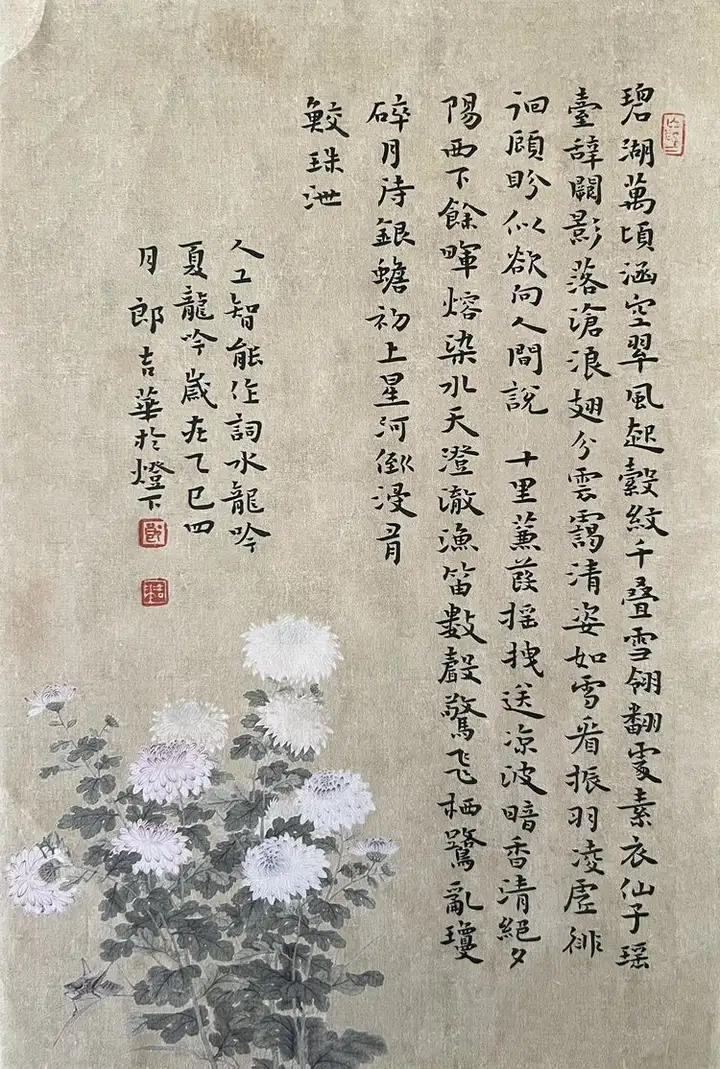 碧湖萬頃涵空翠風起縠紋千疊雪翎翻霎素衣仙子瑶
臺辭闕影落滄浪翅分雲靄清姿如雪看振羽凌虛徘
徊顧盼似欲向人間說 十里蒹葭摇拽送凉波暗香清絕夕
陽西下餘暉熔染水天澄澈漁笛數聲驚飛栖鷺亂瓊
碎月待銀蟾初上星河倒浸看
鮫珠泄
人工智能作詞水龍吟
夏龍吟歲在乙巳四
月 郎吉華於燈下